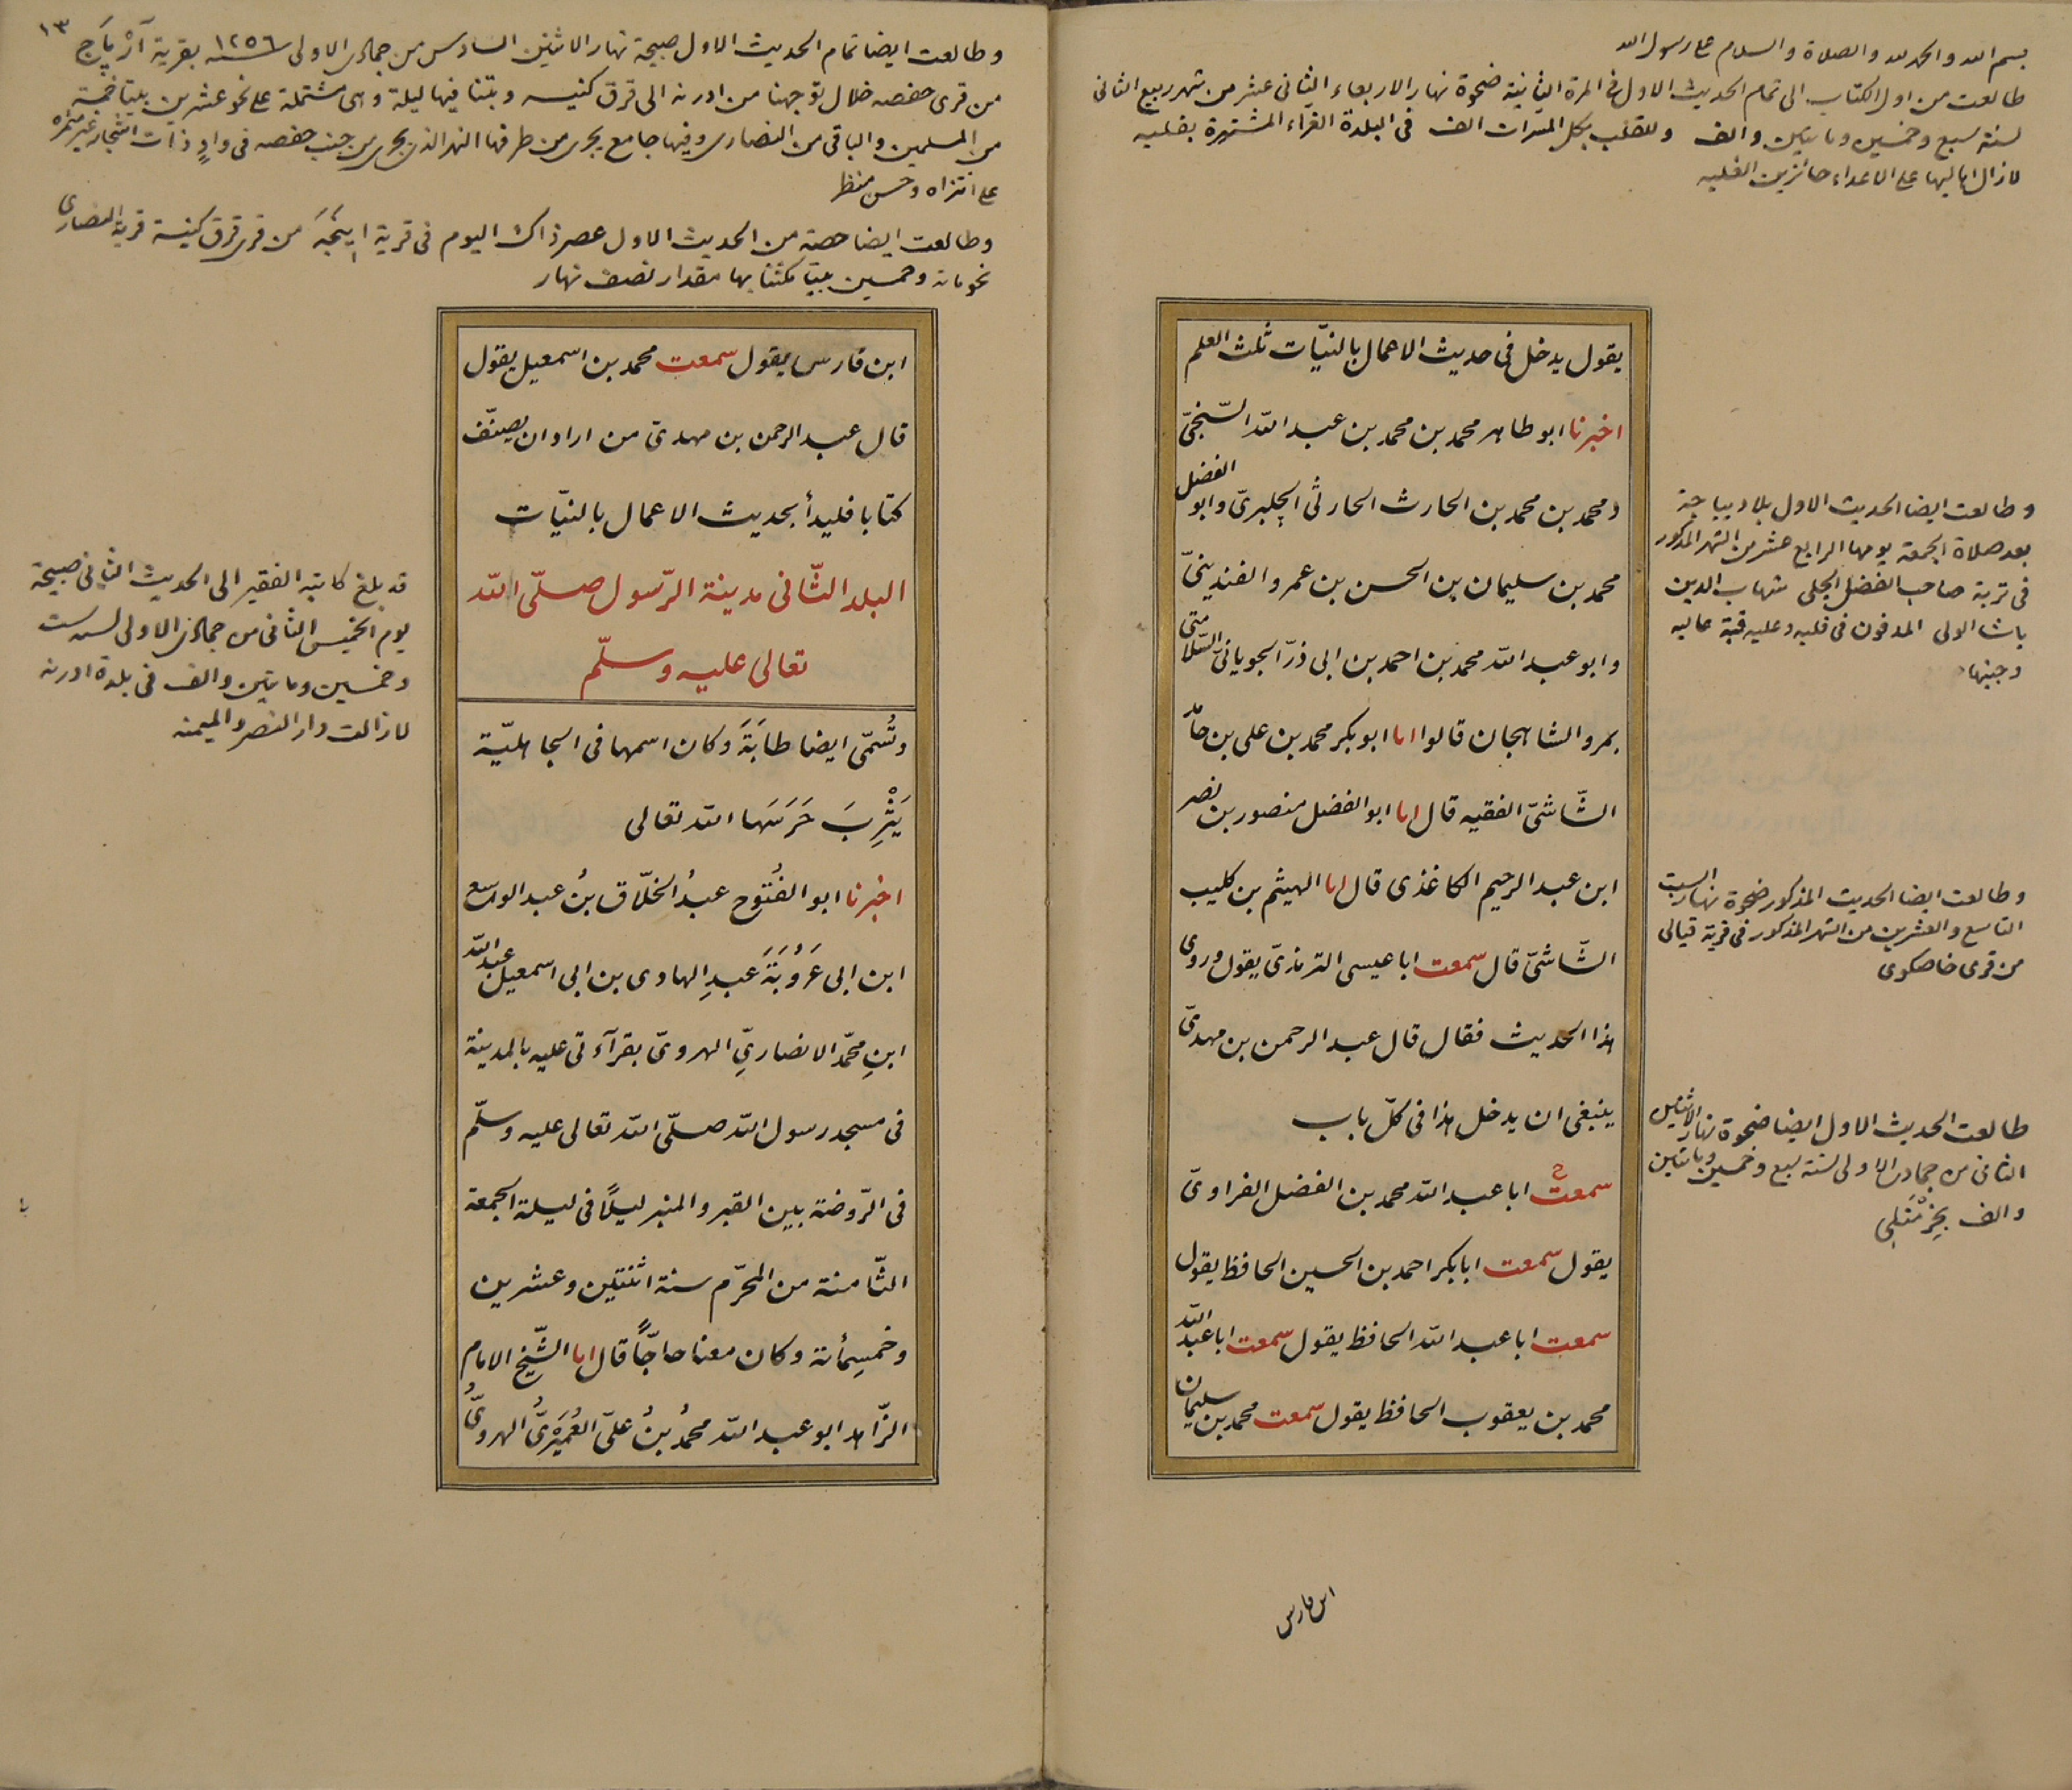 بسم الله والحمد لله والصلاة والسلام على رسول الله
طالعت من اول الكتاب الى تمام الحديث الاول فى المرة الثانية ضحوة نهار الاربعاء الثانى عشر من شهر ربيع الثانى
لسنة سبع وخمسين ومايتين والف وللقلب بكل المسرات الف فى البلدة الغراء المشتهرة بفلبه
لازال اهاليها على الاعداء حائزين الغلبه
يقول يدخل فى حديث الاعمال بالنيّات ثلث العلم
اخبرنا ابو طاهر محمد بن محمد بن عبد الله السّنجىّ
ومحمد بن محمد بن الحارث الحارثى وابو الفضل
محمد بن سليمان بن الحسن بن عمرو الفندينىّ
وابو عبد الله محمد بن احمد بن ابى ذرّ السّلامتى
بمرو الشاهجان قالوا انا ابو بكر محمد بن على بن حامد
الشّاشىّ الفقيه قال انا ابو الفضل منصور بن نصر
ابن عبد الرحيم الكاغذى قال انا الهيثم بن كليب
الشّاشىّ قال سمعت ابا عيسى الترمذىّ يقول وروى
هذا الحديث فقال قال عبد الرحمن بن مهدىّ
ينبغى ان يدخل هذا فى كلّ باب
ح
سمعت ابا عبد الله محمد بن الفضل الفراوىّ
يقول سمعت ابا بكر احمد بن الحسين الحافظ يقول
سمعت ابا عبد الله الحافظ يقول سمعت ابا عبد الله
محمد بن يعقوب الحافظ يقول سمعت محمد بن سليمان
ابن فارس
وطالعت ايضا الحديث الاول بلا ديباجة
بعد صلاة الجمعة يومها الرابع عشر من الشهر المذكور
فى تربة صاحب الفضل الجلى شهاب الدين
باشا الولى المدفون فى فلبه وعليه قبة عاليه
وطالعت ايضا الحديث المذكور ضحوة نهار السبت
التاسع والعشرين من الشهر المذكور فى قرية قيالى
من قرى خاصكوى
طالعت الحديث الاول ايضا ضحوة نهار الاثنين
الثانى من جمادى الاولى لسنة سبع وخمسين ومايتين
والف
١٣
وطالعت ايضا تمام الحديث الاول صبيحة نهار الاثنين السادس من جمادى الاولى سنة ١٢٥٦ بقرية
من قرى حفصه خلال توجهنا من ادرنه الى قرق كنيسه وبتنا فيها ليلة وهى مشتملة على نحو عشرين بيتا خمسة
من المسلمين والباقى من النصارى وفيها جامع يجرى من طرفها النهر الذى يجرى من جنب حفصه فى وادٍ ذات اشجار غير مثمرة
على انتزاه وحسن منظر
وطالعت ايضا حصة من الحديث الاول عصر ذاك اليوم فى قرية من قرى قرق كنيسة قرية النصارى
نحو مائة وخمسين بيتا مكثنا بها مقدار نصف نهار
ابن فارس يقول سمعت محمد بن اسمعيل يقول
قال عبد الرحمن بن مهدىّ من اراد ان يصنّف
كتابا فليبدأ بحديث الاعمال بالنيّات
البلد الثّانى مدينة الرّسول صلّى الله
تعالى عليه وسلّم
وتُسمّى ايضا طابَةَ وكان اسمها فى الجاهليّة
يَثْرِبَ حَرَسَها الله تعالى
اخبرنا ابو الفُتوح عبدُ الخلّاق بنُ عبد الواسع
ابن ابى عَرُوبَةَ عبدِ الهادى بن ابى اسمعيل عبد الله
ابنِ محمّد الانصارىِّ الهروىّ بقرآءتى عليه بالمدينة
فى مسجد رسول الله صلّى الله تعالى عليه وسلّم
فى الرّوضة بين القبر والمنبر ليلاً فى ليلة الجمعة
الثّامنة من المحرّم سنة اثنتين وعشرين
وخمسِمأئة وكان معنا حاجّاً قال انا الشّيخ الامام
الزّاهد ابو عبد الله محمدُ بنُ علىّ العُمَيْرىُّ الهروىُّ
قد بلغ كاتبه الفقير الى الحديث الثانى صبيحة
يوم الخميس الثانى من جمادى الاولى لسنة ست
وخمسين ومايتين والف فى بلدة ادرنه
لازالت دار النصر والميمنه